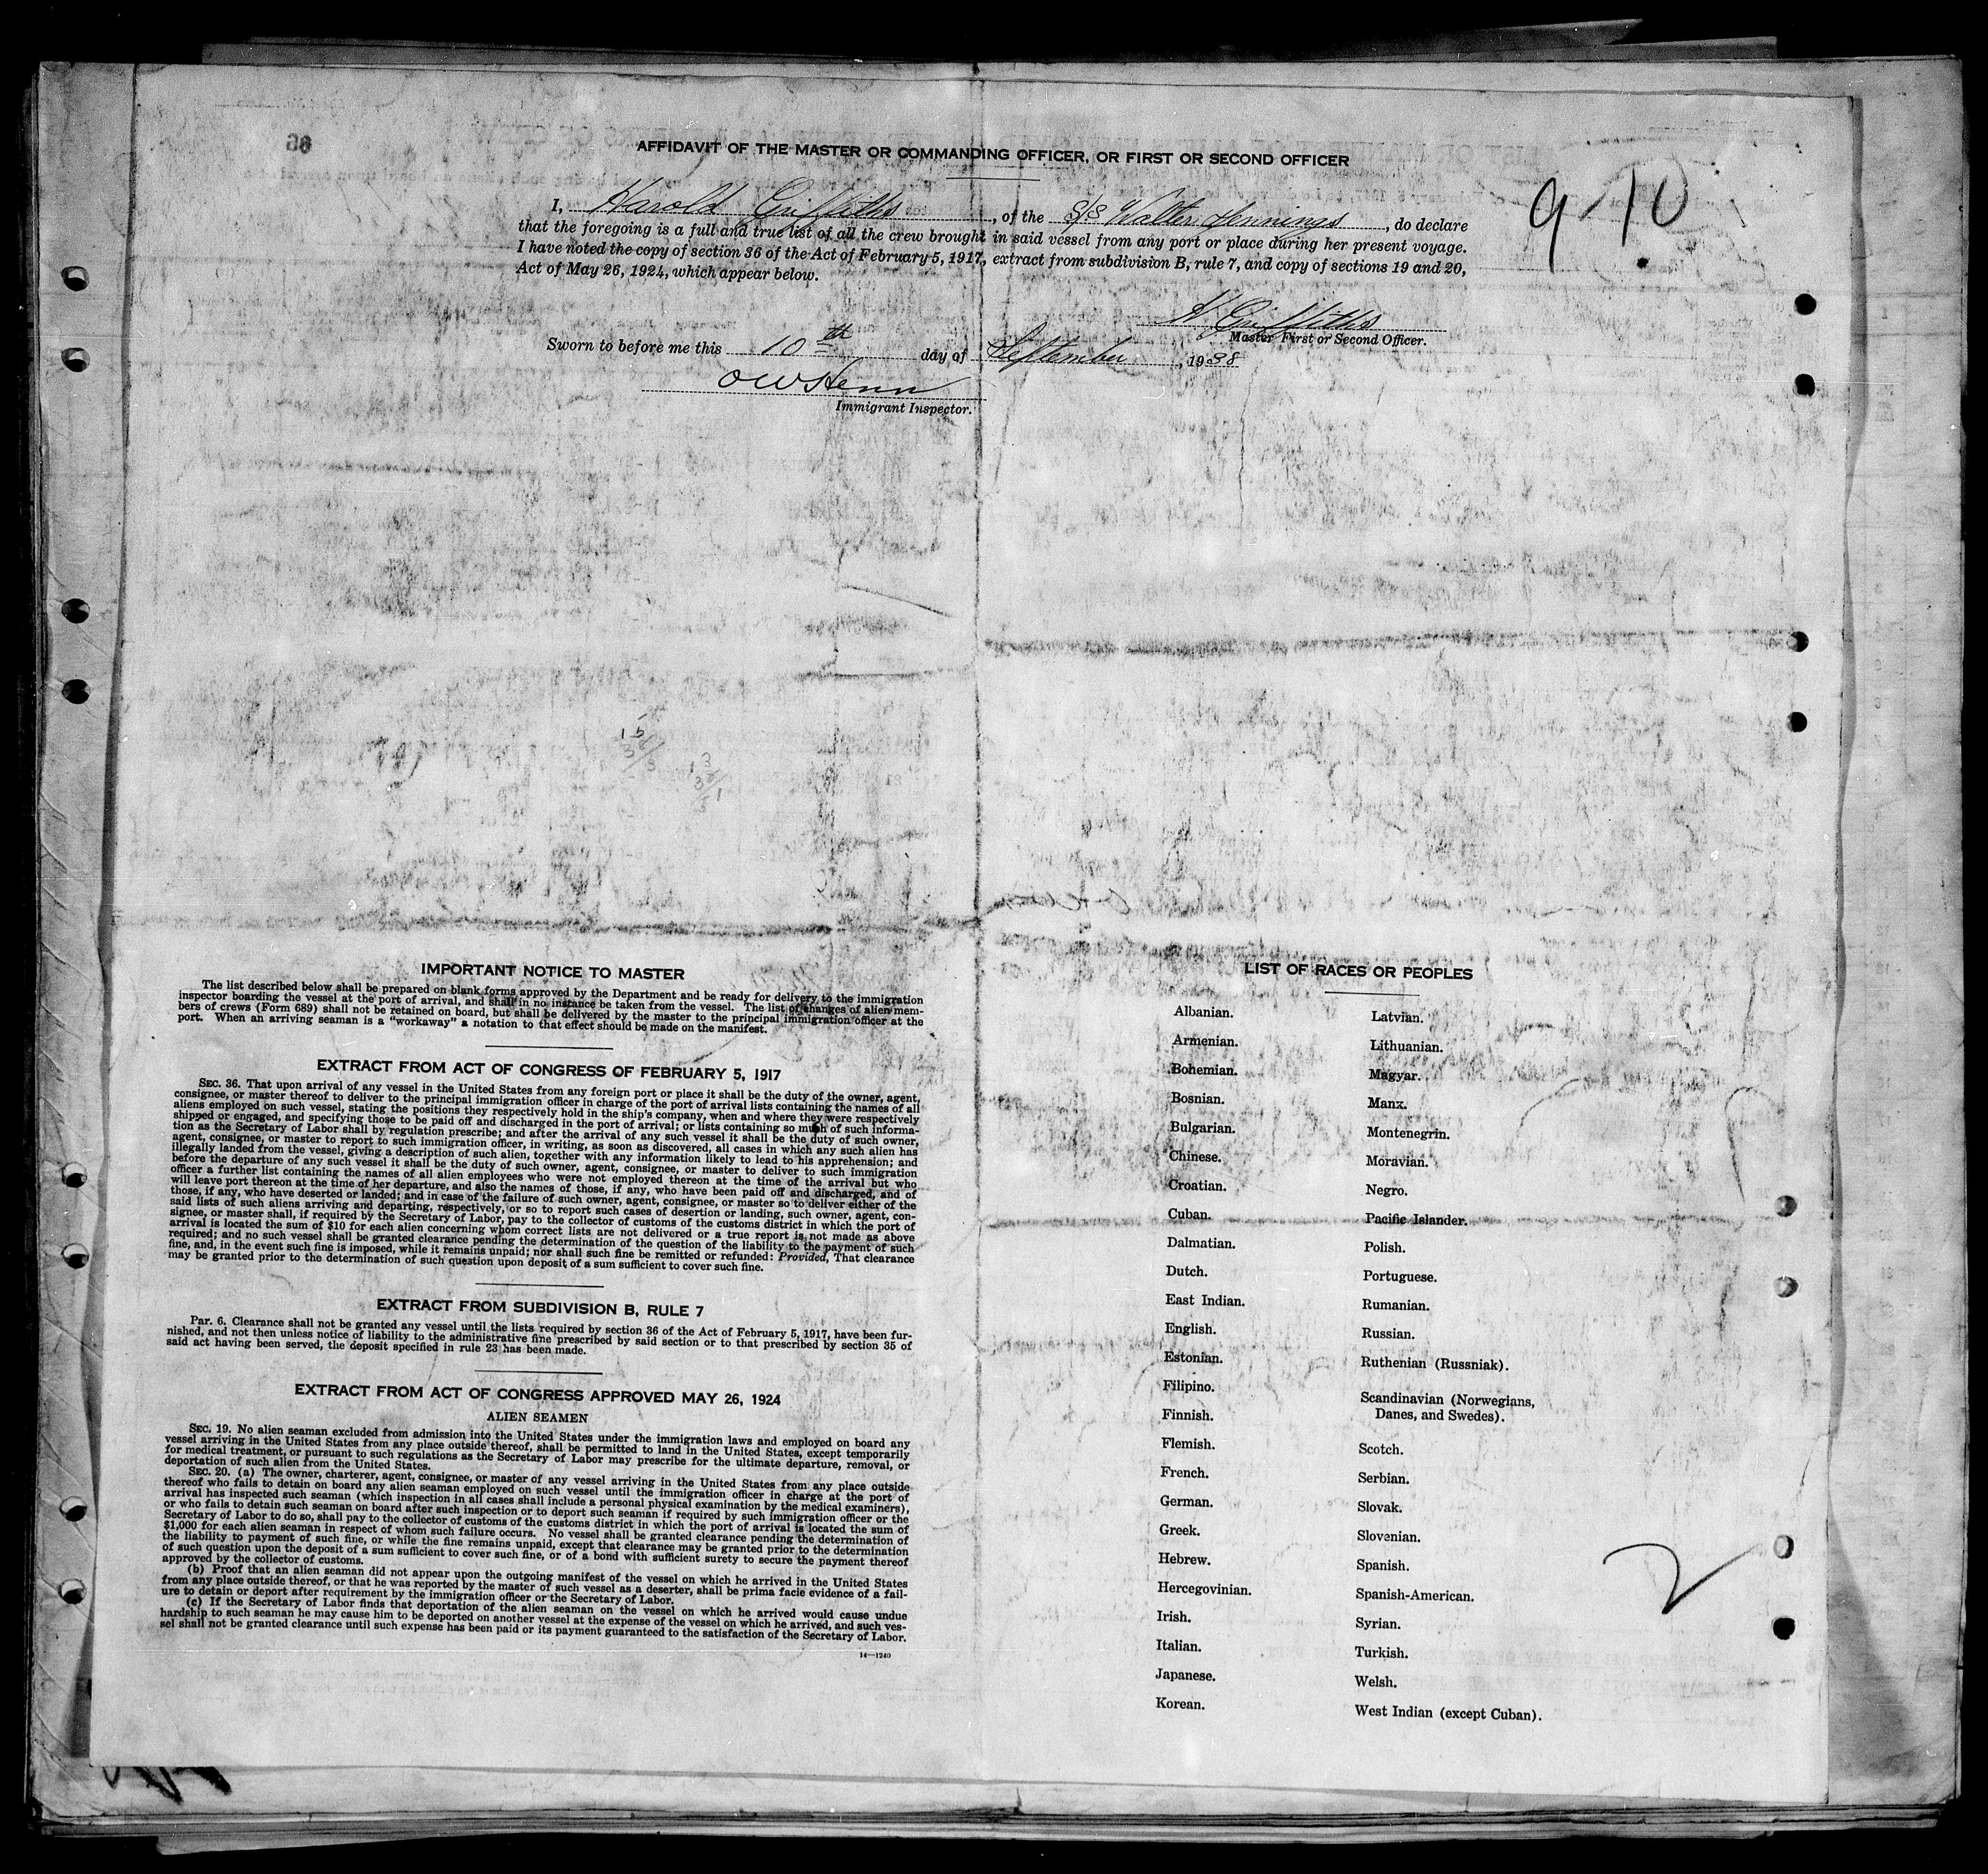 AFFIDAVIT OF THE MASTER OR COMMANDING OFFICER, OR FIRST OR SECOND OFFICER
9-10
I, Harold Griffiths, of the S/S Walter Jennings, do declare
that the foregoing is a full and true list of all the crew brought in said vessel from any port or place during her present voyage.
I have noted the copy of section 36 of the Act of February 5, 1917, extract from subdivision B, rule 7, and copy of sections 19 and 20,
Act of May 26, 1924, which appear below.
H Griffiths
Master First or Second Officer.
Sworn to before me this 10th day of September, 1938
OWHenn
Immigrant Inspector.
IMPORTANT NOTICE TO MASTER
The list described below shall be prepared on blank forms approved by the Department and be ready for delivery to the immigration
inspector boarding the vessel at the port of arrival, and shall in no instance be taken from the vessel. The list of changes of alien mem-
bers of crews (Form 689) shall not be retained on board, but shall be delivered by the master to the principal immigration officer at the
port. When an arriving seaman is a "workaway" a notation to that effect should be made on the manifest.
EXTRACT FROM ACT OF CONGRESS OF FEBRUARY 5, 1917
SEC. 36. That upon arrival of any vessel in the United States from any foreign port or place it shall be the duty of the owner, agent,
consignee, or master thereof to deliver to the principal immigration officer in charge of the port of arrival lists containing the names of all
aliens employed on such vessel, stating the positions they respectively hold in the ship's company, when and where they were respectively
shipped or engaged, and specifying those to be paid off and discharged in the port of arrival; or lists containing so much of such informa-
tion as the Secretary of Labor shall by regulation prescribe; and after the arrival of any such vessel it shall be the duty of such owner,
agent, consignee, or master to report to such immigration officer, in writing, as soon as discovered, all cases in which any such alien has
illegally landed from the vessel, giving a description of such alien, together with any information likely to lead to his apprehension; and
before the departure of any such vessel it shall be the duty of such owner, agent, consignee, or master to deliver to such immigration
officer a further list containing the names of all alien employees who were not employed thereon at the time of the arrival but who
will leave port thereon at the time of her departure, and also the names of those, if any, who have been paid off and discharged, and of
those, if any, who have deserted or landed; and in case of the failure of such owner, agent, consignee, or master so to deliver either of the
said lists of such aliens arriving and departing, respectively, or so to report such cases of desertion or landing, such owner, agent, con-
signee, or master shall, if required by the Secretary of Labor, pay to the collector of customs of the customs district in which the port of
arrival is located the sum of $10 for each alien concerning whom correct lists are not delivered or a true report is not made as above
required; and no such vessel shall be granted clearance pending the determination of the question of the liability to the payment of such
fine, and, in the event such fine is imposed, while it remains unpaid; nor shall such fine be remitted or refunded: Provided, That clearance
may be granted prior to the determination of such question upon deposit of a sum sufficient to cover such fine.
EXTRACT FROM SUBDIVISION B, RULE 7
PAR. 6. Clearance shall not be granted any vessel until the lists required by section 36 of the Act of February 5, 1917, have been fur-
nished, and not then unless notice of liability to the administrative fine prescribed by said section or to that prescribed by section 35 of
said act having been served, the deposit specified in rule 23 has been made.
EXTRACT FROM ACT OF CONGRESS APPROVED MAY 26, 1924
ALIEN SEAMEN
SEC. 19. No alien seaman excluded from admission into the United States under the immigration laws and employed on board any
vessel arriving in the United States from any place outside thereof, shall be permitted to land in the United States, except temporarily
for medical treatment, or pursuant to such regulations as the Secretary of Labor may prescribe for the ultimate departure, removal, or
deportation of such alien from the United States.
SEC. 20. (a) The owner, charterer, agent, consignee, or master of any vessel arriving in the United States from any place outside
thereof who fails to detain on board any alien seaman employed on such vessel until the immigration officer in charge at the port of
arrival has inspected such seaman (which inspection in all cases shall include a personal physical examination by the medical examiners),
or who fails to detain such seaman on board after such inspection or to deport such seaman if required by such immigration officer or the
Secretary of Labor to do so, shall pay to the collector of customs of the customs district in which the port of arrival is located the sum of
$1,000 for each alien seaman in respect of whom such failure occurs. No vessel shall be granted clearance pending the determination of
the liability to payment of such fine, or while the fine remains unpaid, except that clearance may be granted prior to the determination
of such question upon the deposit of a sum sufficient to cover such fine, or of a bond with sufficient surety to secure the payment thereof
approved by the collector of customs.
(b) Proof that an alien seaman did not appear upon the outgoing manifest of the vessel on which he arrived in the United States
from any place outside thereof, or that he was reported by the master of such vessel as a deserter, shall be prima facie evidence of a fail-
ure to detain or deport after requirement by the immigration officer or the Secretary of Labor.
(c) If the Secretary of Labor finds that deportation of the alien seaman on the vessel on which he arrived would cause undue
hardship to such seaman he may cause him to be deported on another vessel at the expense of the vessel on which he arrived, and such ves-
sel shall not be granted clearance until such expense has been paid or its payment guaranteed to the satisfaction of the Secretary of Labor.
14—1240
LIST OF RACES OR PEOPLES
Albanian.
Armenian.
Bohemian.
Bosnian.
Bulgarian.
Chinese.
Croatian.
Cuban.
Dalmatian.
Dutch.
East Indian.
English.
Estonian.
Filipino.
Finnish.
Flemish.
French.
German.
Greek.
Hebrew.
Hercegovinian.
Irish.
Italian.
Japanese.
Korean.
Latvian.
Lithuanian.
Magyar.
Manx.
Montenegrin.
Moravian.
Negro.
Pacific Islander.
Polish.
Portuguese.
Rumanian.
Russian.
Ruthenian (Russniak).
Scandinavian (Norwegians,
Danes, and Swedes).
Scotch.
Serbian.
Slovak.
Slovenian.
Spanish.
Spanish-American.
Syrian.
Turkish.
Welsh.
West Indian (except Cuban).
2